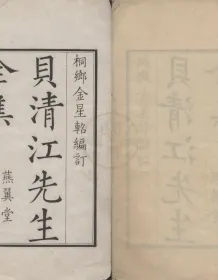 桐鄉金星軺編訂
貝清江先生
全集
燕翼堂